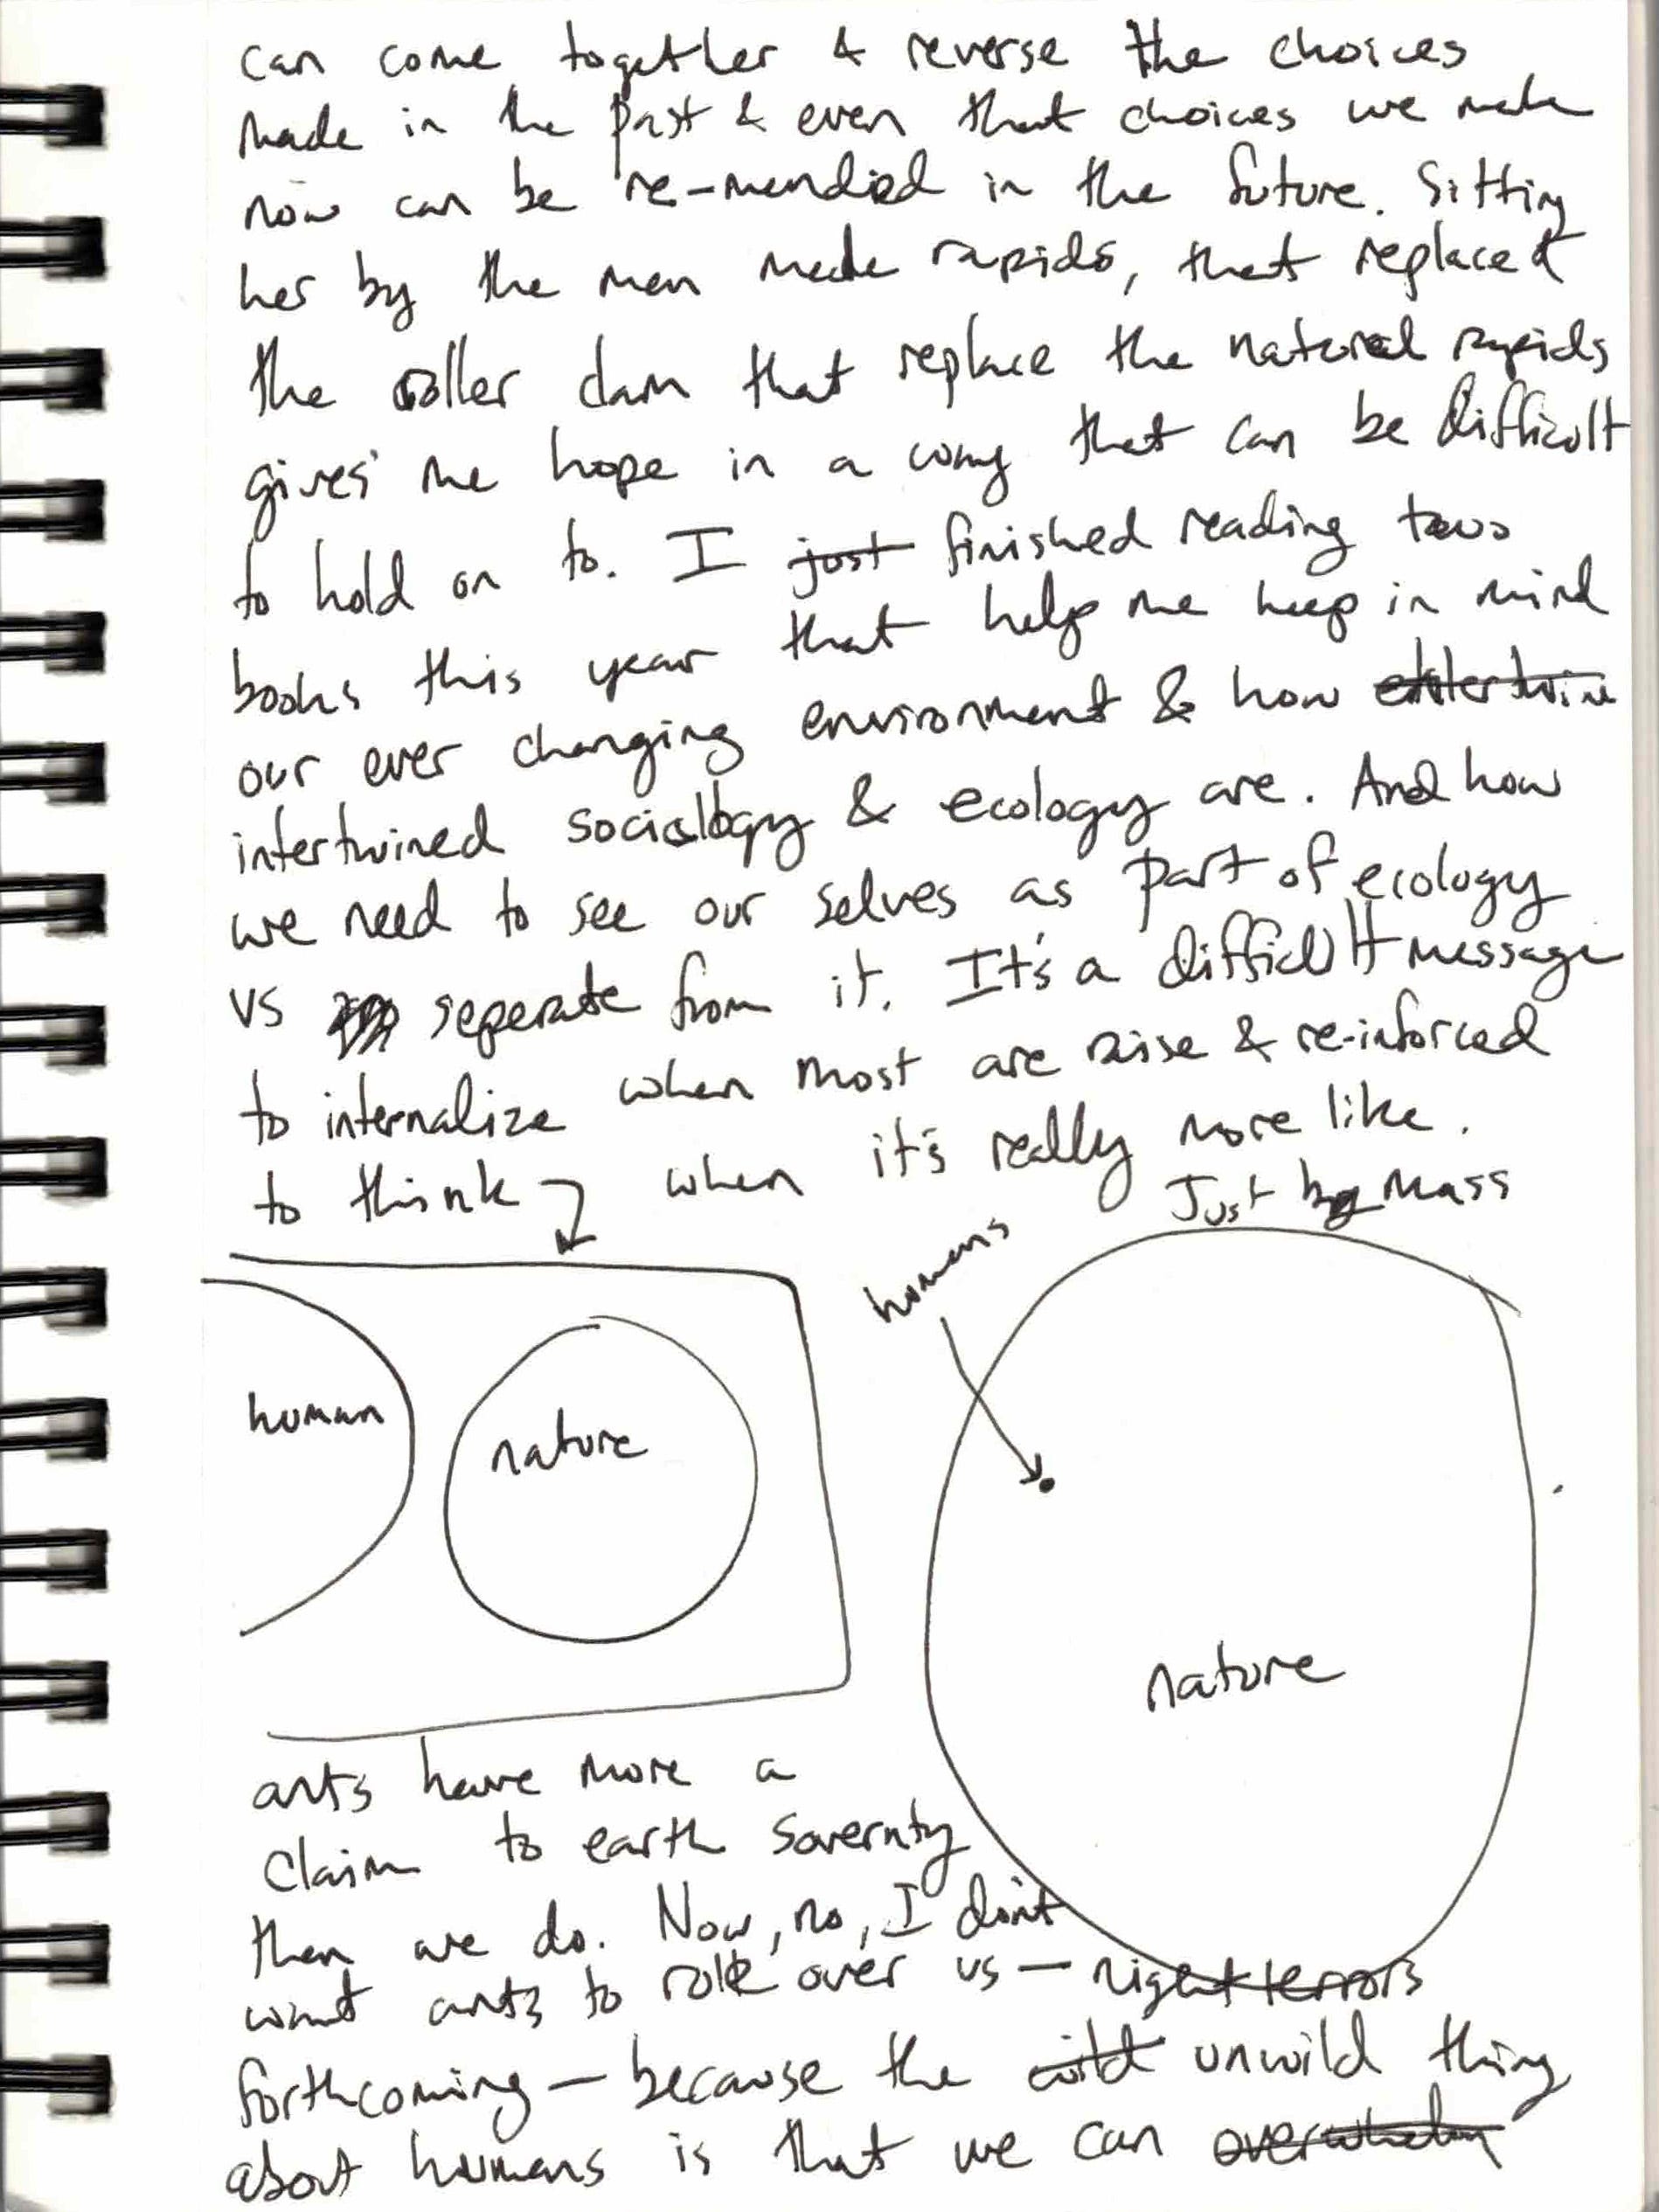 can come together & reverse the choices
made in the past & even that choices we make
now can be re-mended in the future. Sitting
her by the man made rapids, that replaced
the roller dam that replace the natural rapids
gives me hope in a way that can be difficult
to hold on to. I just finished reading two
books this year that help me keep in mind
our ever changing environment & how
intertwined sociology & ecology are. And how
we need to see our selves as part of ecology
vs seperate from it. It's a difficult message
to internalize when most are raise & re-inforced
to think when it's really more like.
Just by mass
humans
human
nature
nature
ants have more a
claim to earth sovernty
then we do. Now, no, I don't
want ants to role over us – night terrors
forthcoming – because the wild unwild thing
about humans is that we can overwhelm